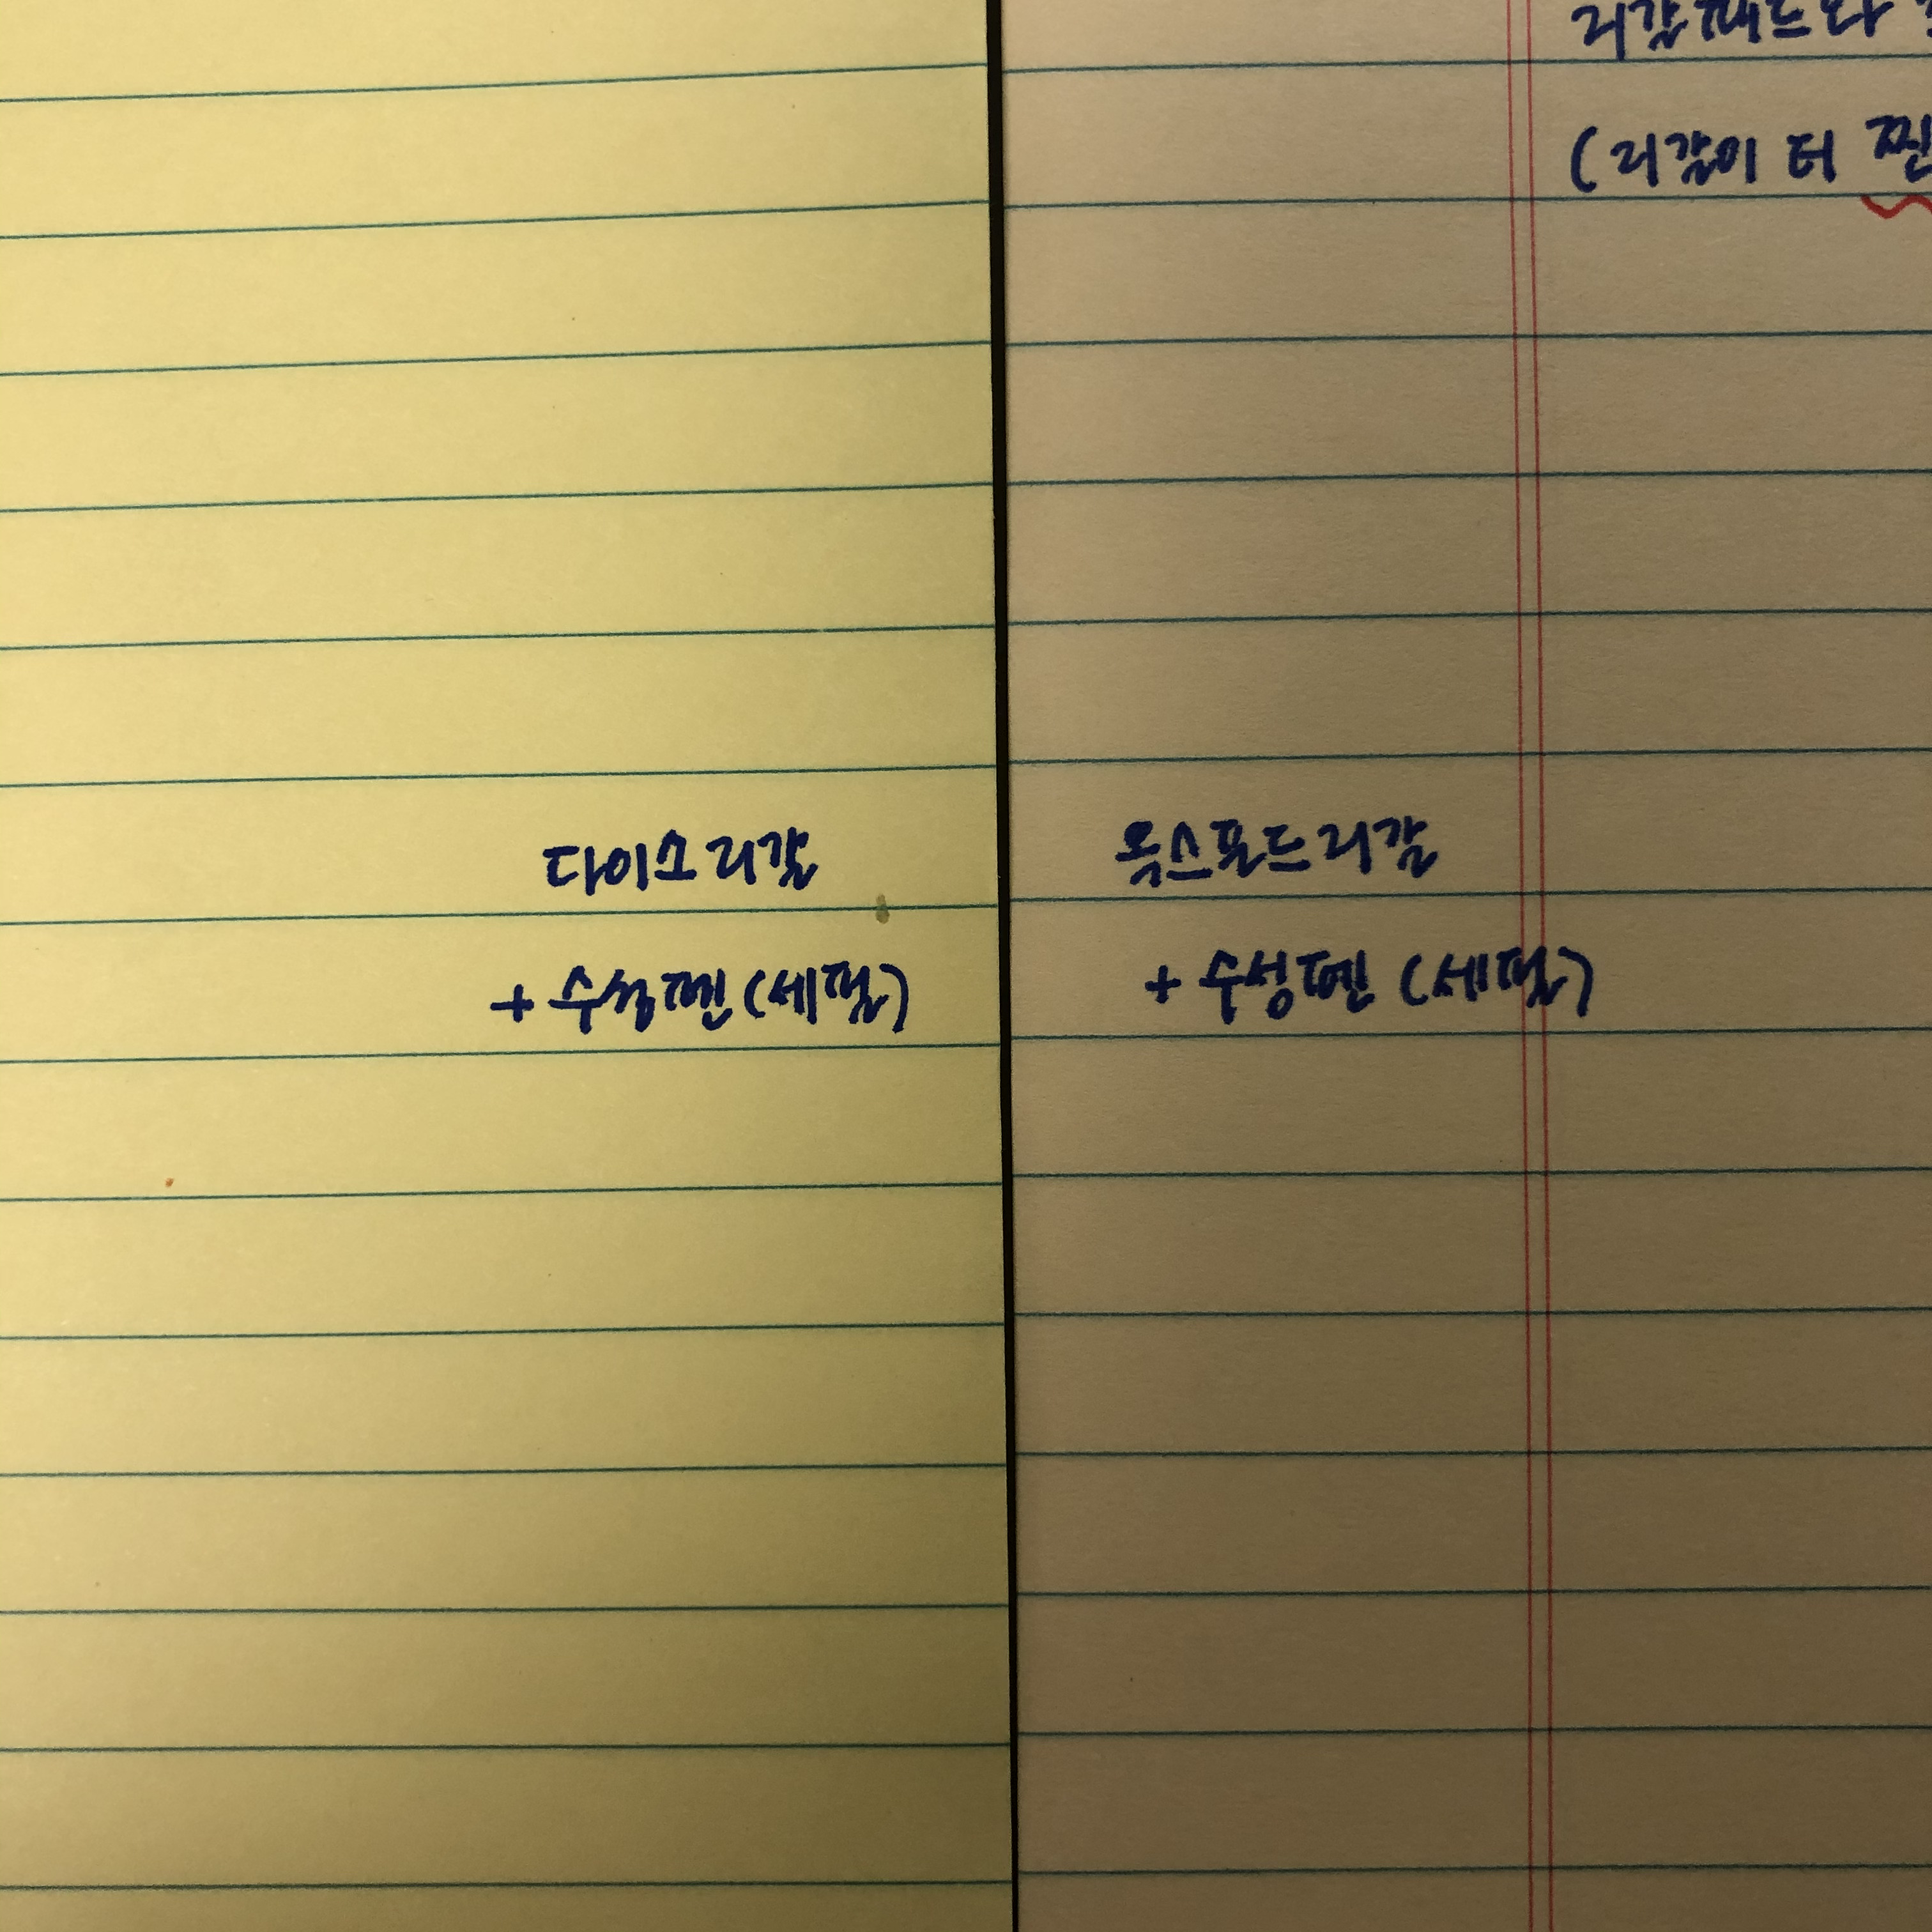 리갈패드와
(리갈이 더 찐
다이소리갈
+ 수성펜(세필)
옥스포드리갈
+ 수성펜 (세필)